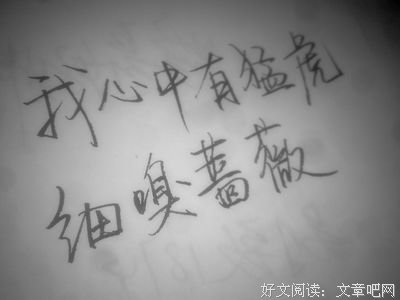 我心中有猛虎
细嗅蔷薇
好文阅读：文章吧网